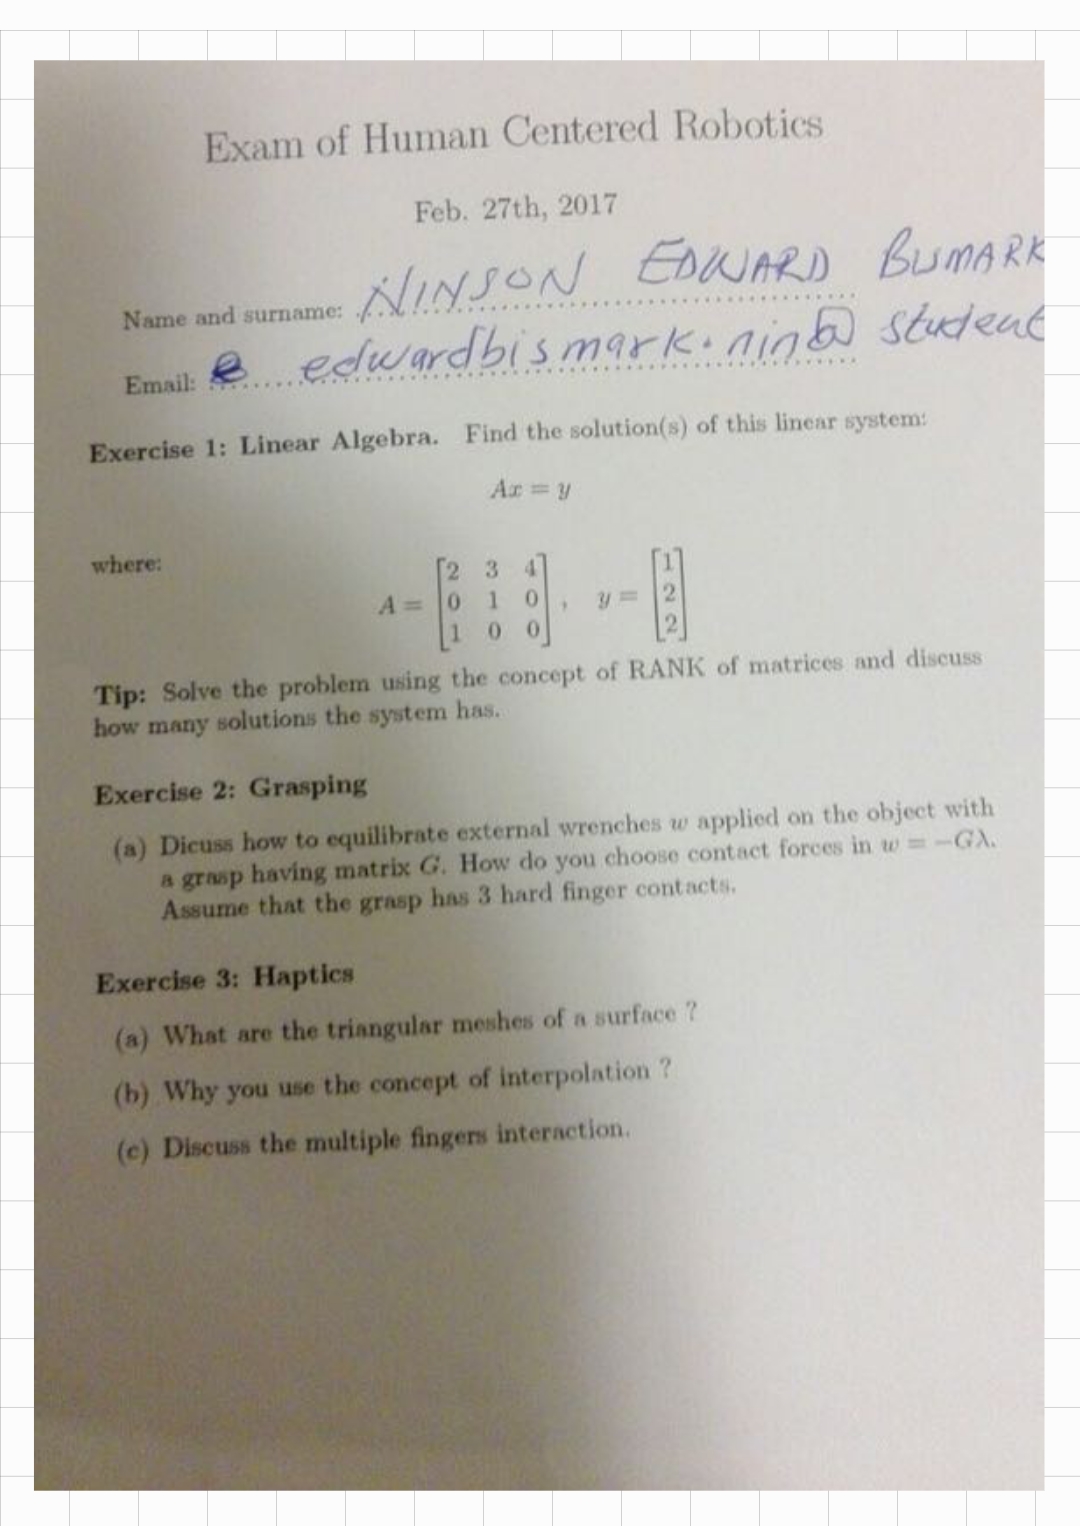 Exam of Human Centered Robotics
Feb. 27th, 2017
Name and surname: NINSON EDWARD BISMARK
Email: edwardbismark.nin@student
Exercise 1: Linear Algebra. Find the solution(s) of this linear system:
Ax = y
where:
A = [2 3 4; 0 1 0; 1 0 0], y = [1; 2; 2]
Tip: Solve the problem using the concept of RANK of matrices and discuss
how many solutions the system has.
Exercise 2: Grasping
(a) Dicuss how to equilibrate external wrenches w applied on the object with
a grasp having matrix G. How do you choose contact forces in w = −Gλ.
Assume that the grasp has 3 hard finger contacts.
Exercise 3: Haptics
(a) What are the triangular meshes of a surface ?
(b) Why you use the concept of interpolation ?
(c) Discuss the multiple fingers interaction.